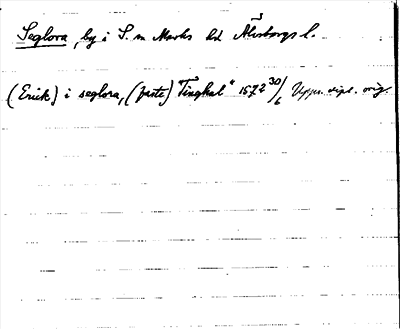 Seglora, by i S. m Marks hd Älvsborgs l.
(Erick) i seglora, (faste) "Tinghal" 1572 30/6 Upps. dipl. orig.